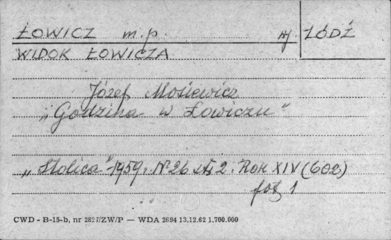 ŁOWICZ m.p. wj ŁÓDŹ
WIDOK ŁOWICZA
Józef Mosiewicz
„Godzina w Łowiczu"
„Stolica" 1959, Nº 26 str 2. Rok XIV (602)
fot 1
CWD - B-15-b, nr 282 I/ZW/P — WDA 2694 13.12.62 1.700.000